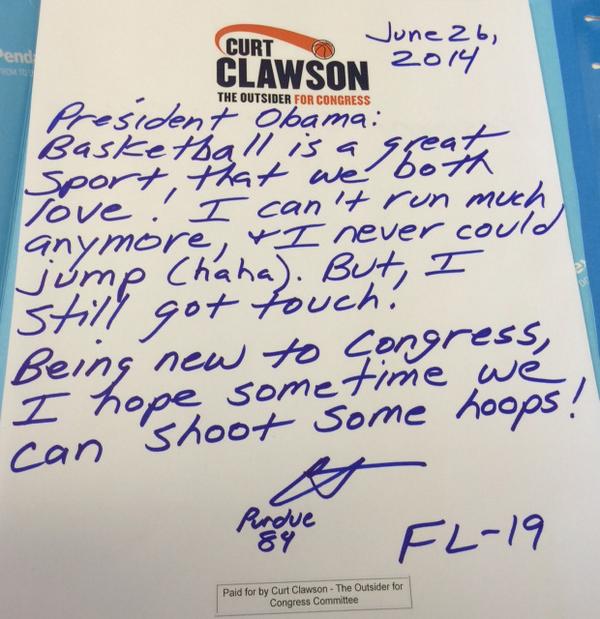 CURT
CLAWSON
THE OUTSIDER FOR CONGRESS
June 26,
2014
President Obama:
Basketball is a great
sport, that we both
love! I can't run much
anymore, & I never could
jump (haha). But, I
still got touch.
Being new to Congress,
I hope sometime we
can shoot some hoops!
Purdue
84
FL-19
Paid for by Curt Clawson - The Outsider for
Congress Committee